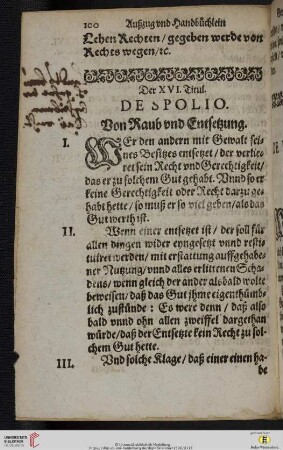 100 Außzug vnd Handbüchlein
Lehen Rechten / gegeben werde von
Rechts wegen / ꝛc.
Der XVI. Titul.
DE SPOLIO.
Von Raub vnd Entsetzung.
I. WEr den andern mit Gewalt sei-
nes Besitzes entsetzet / der verlie-
ret sein Recht vnd Gerechtigkeit /
das er zu solchem Gut gehabt. Vnnd so er
keine Gerechtigkeit oder Recht darzu ge-
habt hette / so muß er so viel geben / als das
Gut werth ist.
II. Wenn einer entsetzet ist / der soll für
allen dingen wider eyngesetzt vnnd resti-
tuiret werden / mit erstattung auffgehabe-
ner Nutzung / vnnd alles erlittenen Scha-
dens / wenn gleich der ander alsbald wolte
beweisen / daß das Gut jhme eigenthümb-
lich zustünde : Es were denn / daß also
bald vnnd ohn allen zweiffel dargethan
würde / daß der Entsetzte kein Recht zu sol-
chem Gut hette.
III. Vnd solche Klage / daß einer einen ha-
be